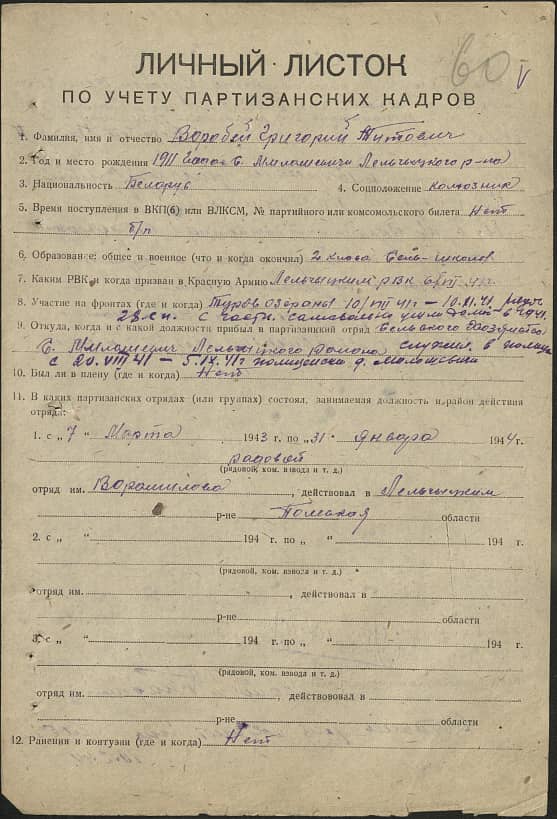 60 V
ЛИЧНЫЙ ЛИСТОК
ПО УЧЕТУ ПАРТИЗАНСКИХ КАДРОВ
1. Фамилия, имя и отчество Воробей Григорий Титович
2. Год и место рождения 1911 С. Милошевичи Лельчицкого р-на
3. Национальность Белорус 4. Соцположение колхозник
5. Время поступления в ВКП(б) или ВЛКСМ, № партийного или комсомольского билета Нет
б/п
6. Образование: общее и военное (что и когда окончил) 2 класса Сель-школы
7. Каким РВК и когда призван в Красную Армию Лельчицким РВК 6/VII 41 г.
8. Участие на фронтах (где и когда) Туров Озераны 10/VII 41г –
28 с.п. с части самовольно ушли домой в 1941.
9. Откуда, когда и с какой должности прибыл в партизанкий отряд Сельского Хозяйства
С. Милошевичи Лельчицкого района служил в полиции
с 20.VIII 41 – 5.IX 41г полицейски д.
10. Был ли в плену (где и когда) Нет
11. В каких партизанских отрядах (или группах) состоял, занимаемая должность и район действия
отряда:
1. с „7 “ Марта 1943 г. по „31 “ января 1944 г.
рядовой
(рядовой, ком. взвода и т. д.)
отряд им. Ворошилова, действовал в Лельчицким
р-не Полеская области
2. с „ “ 194 г. по „ “ 194 г.
(рядовой, ком. взвода и т. д.)
отряд им. , действовал в
р-не области
3. с „ “ 194 г. по „ “ 194 г.
(рядовой, ком. взвода и т. д.)
отряд им. , действововал в
р-не области
12. Ранения и контузии (где и когда) Нет